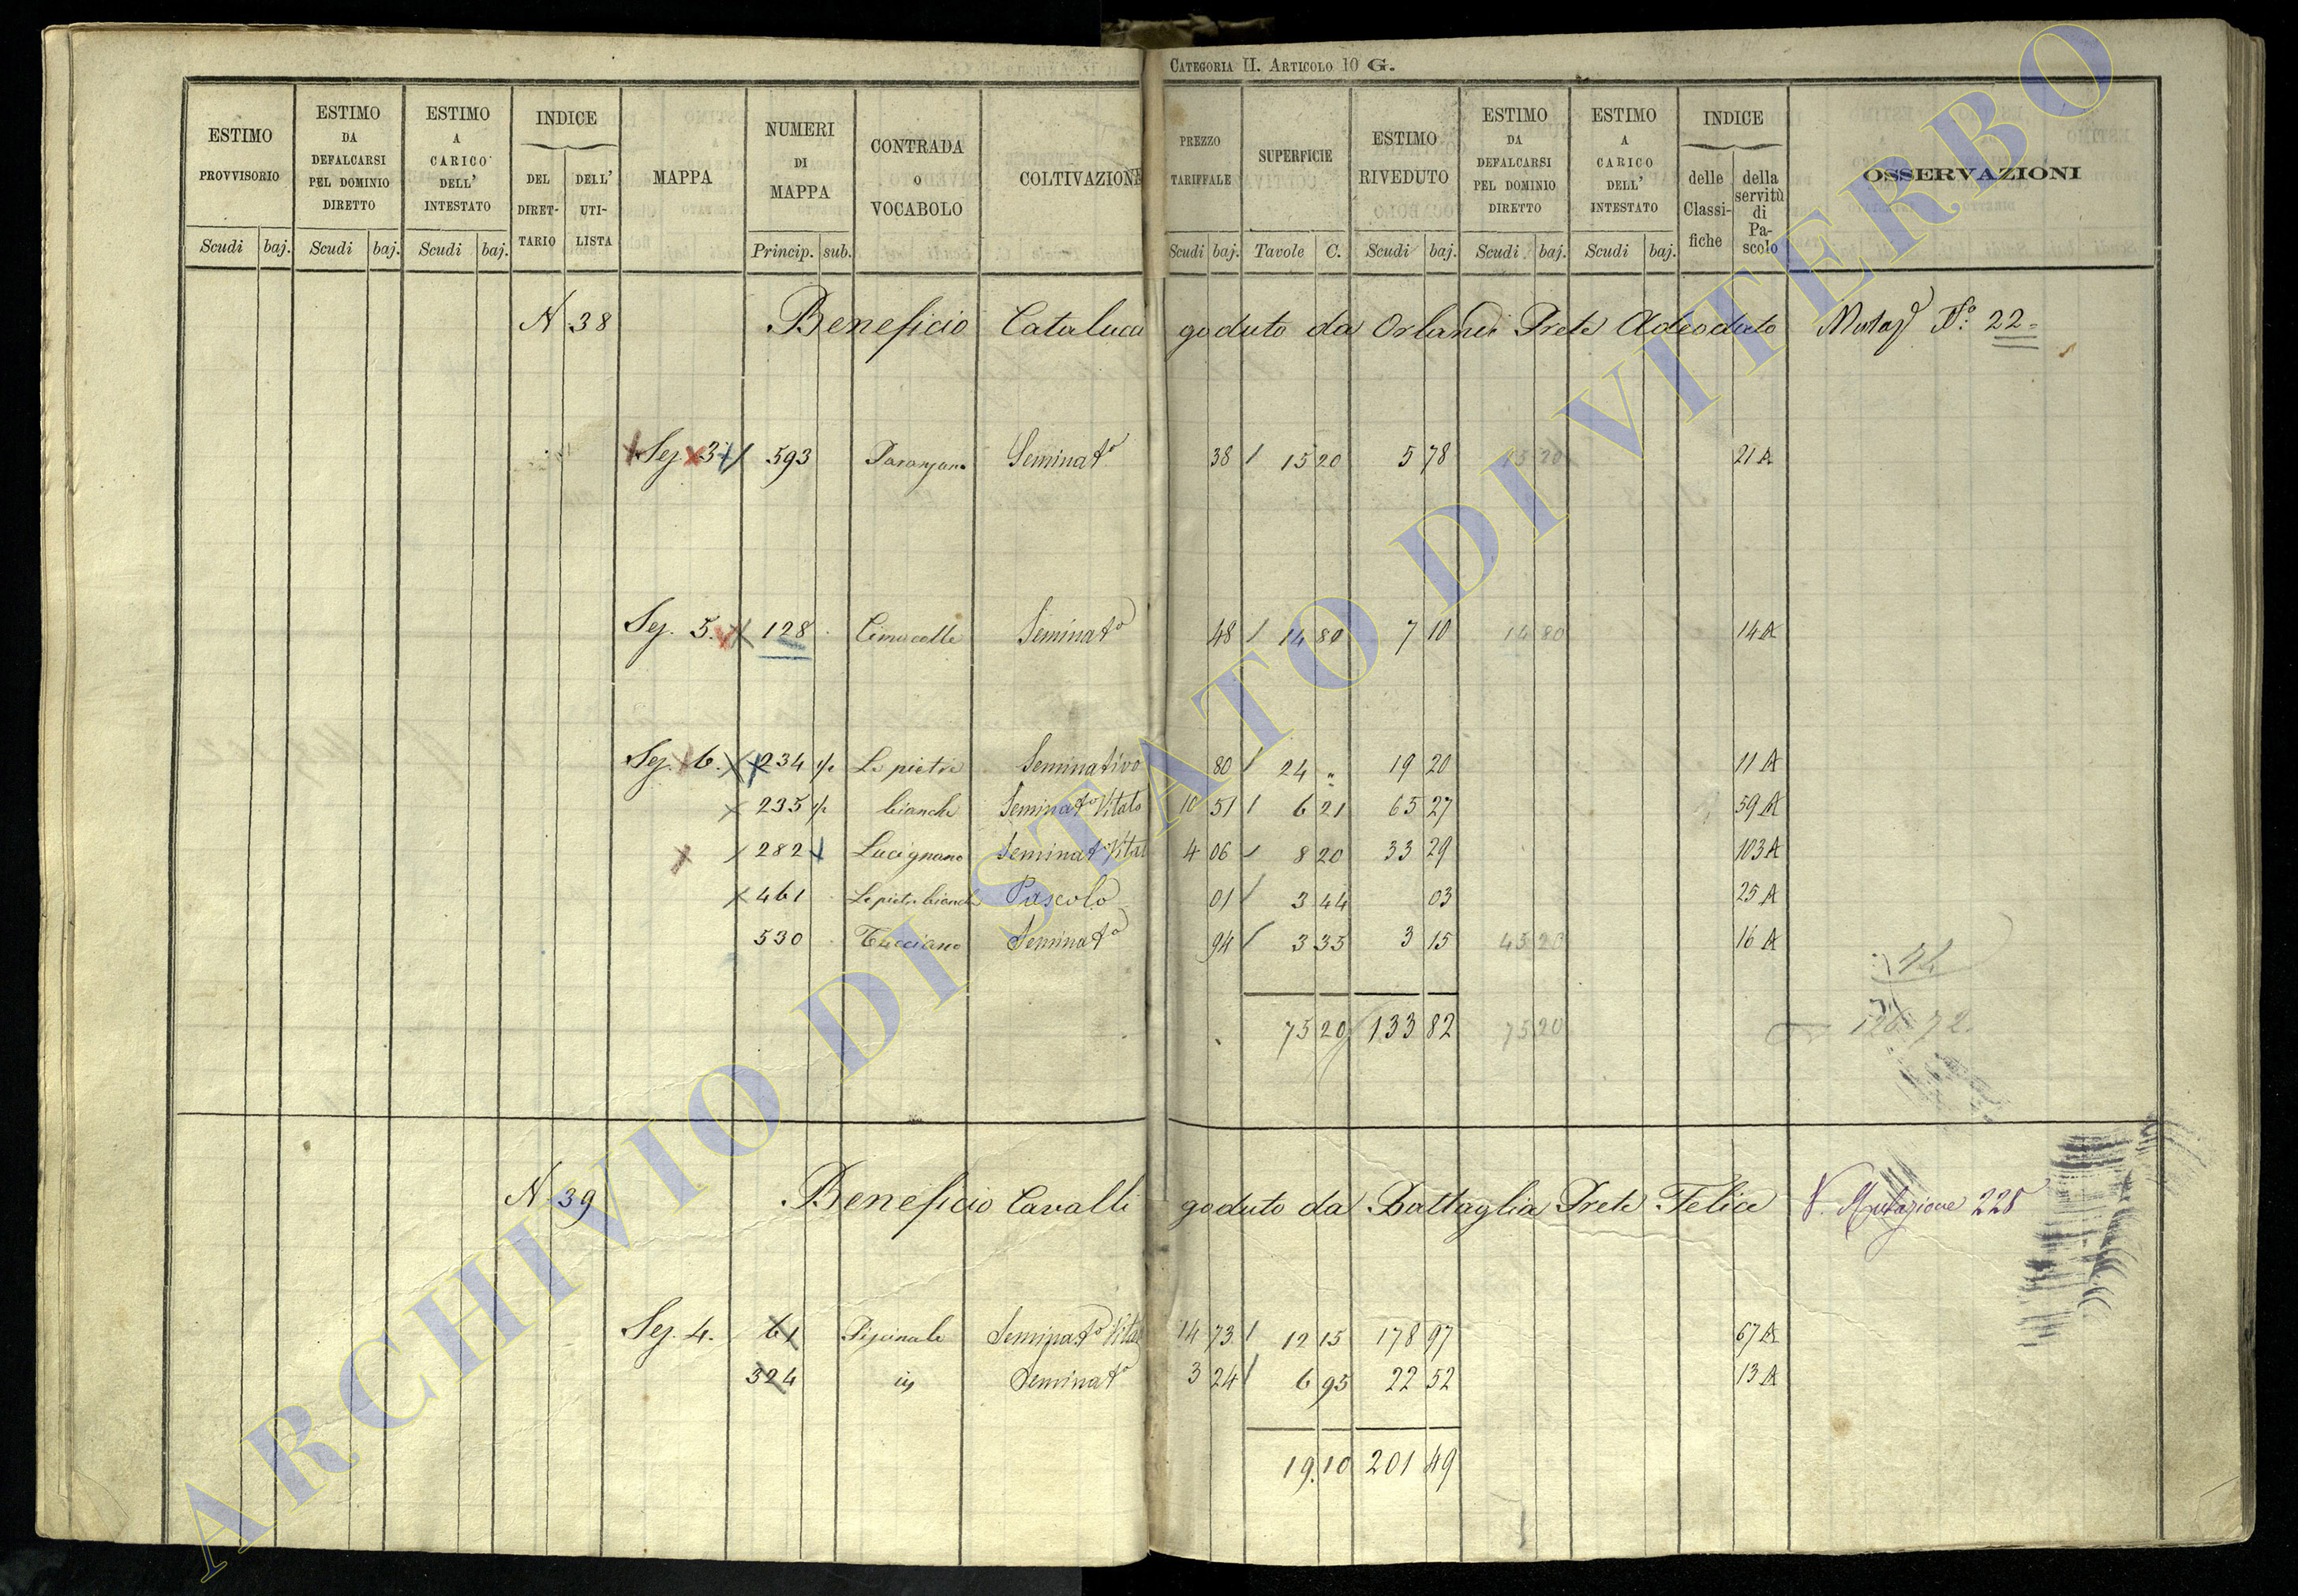 CATEGORIA II. ARTICOLO 10 G.
ESTIMO PROVVISORIO ESTIMO DA DEFALCARSI PEL DOMINIO DIRETTO ESTIMO A CARICO DELL' INTESTATO INDICE DEL DIRET- TARIO DELL' UTI- LISTA MAPPA NUMERI DI MAPPA CONTRADA O VOCABOLO COLTIVAZIONE PREZZO TARIFFALE SUPERFICIE ESTIMO RIVEDUTO ESTIMO DA DEFALCARSI PEL DOMINIO DIRETTO ESTIMO A CARICO DELL' INTESTATO INDICE delle Classi- fiche della servitù di Pa- scolo OSSERVAZIONI
Scudi baj. Scudi baj. Scudi baj. Princip. sub. Scudi baj. Tavole C. Scudi baj. Scudi baj. Scudi baj.
N 38 Beneficio Cataluca goduto da Orlandi Prete Adeodato N.º 22
Sez. 3 593 Seminatº 38 15 20 5 78 15 20 21 A
Sez. 5. 128 Seminatº 48 14 80 7 10 14 80 14 A
Sez. 6. 234 Le pietre Seminativo 80 24 " 19 20 11 A
235 bianche Seminatº Vitato 10 51 6 21 65 27 59 A
282 Lucignano Seminat Vitat 4 06 8 20 33 29 103 A
461 Le pietre bianche Pascolo 01 3 44 03 25 A
530 Tucciano Seminatº 94 3 35 3 15 45 20 16 A
75 20 133 82 75 20
126 72
N 39 Beneficio Cavalli goduto da Battaglia Prete Felice V. Mutazione 228
Sez. 4. 61 Piscinale Seminatº Vitat 14 73 12 15 178 97 67 A
324 Seminatº 3 24 6 95 22 52 13 A
19.10 201 49
ARCHIVIO DI STATO DI VITERBO